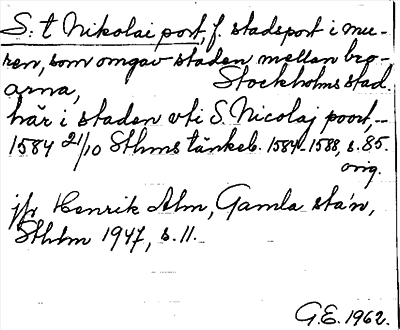 S:t Nikolai port, f. stadsport i mu-
ren, som omgav staden mellan bro-
arna, Stockholms stad.
här i staden vti S. Nicolaj poort, –
1584 21/10 Sthms tänkeb. 1584-1588, s. 85.
orig.
jfr Henrik Alm, Gamla sta'n,
Sthlm 1947, s. 11.
G.E. 1962.